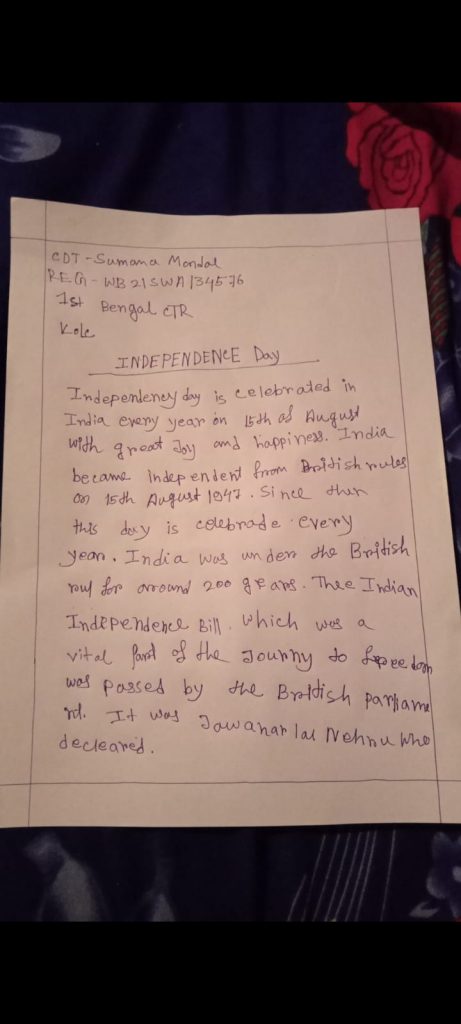 CDT - Sumana Mondal
REG - WB21SWA134576
1st Bengal CTR
Kole
INDEPENDENCE Day
Independency day is celebrated in
India every year on 15th of August
with great Joy and happiness. India
became independent from British rules
on 15th August 1947. Since then
this day is celebrade every
year. India was under the British
rul for around 200 years. Thee Indian
Independence Bill. which was a
vital part of the Journy to freedom
was passed by the British parliame
nt. It was Jawaharlal Nehru who
decleared.